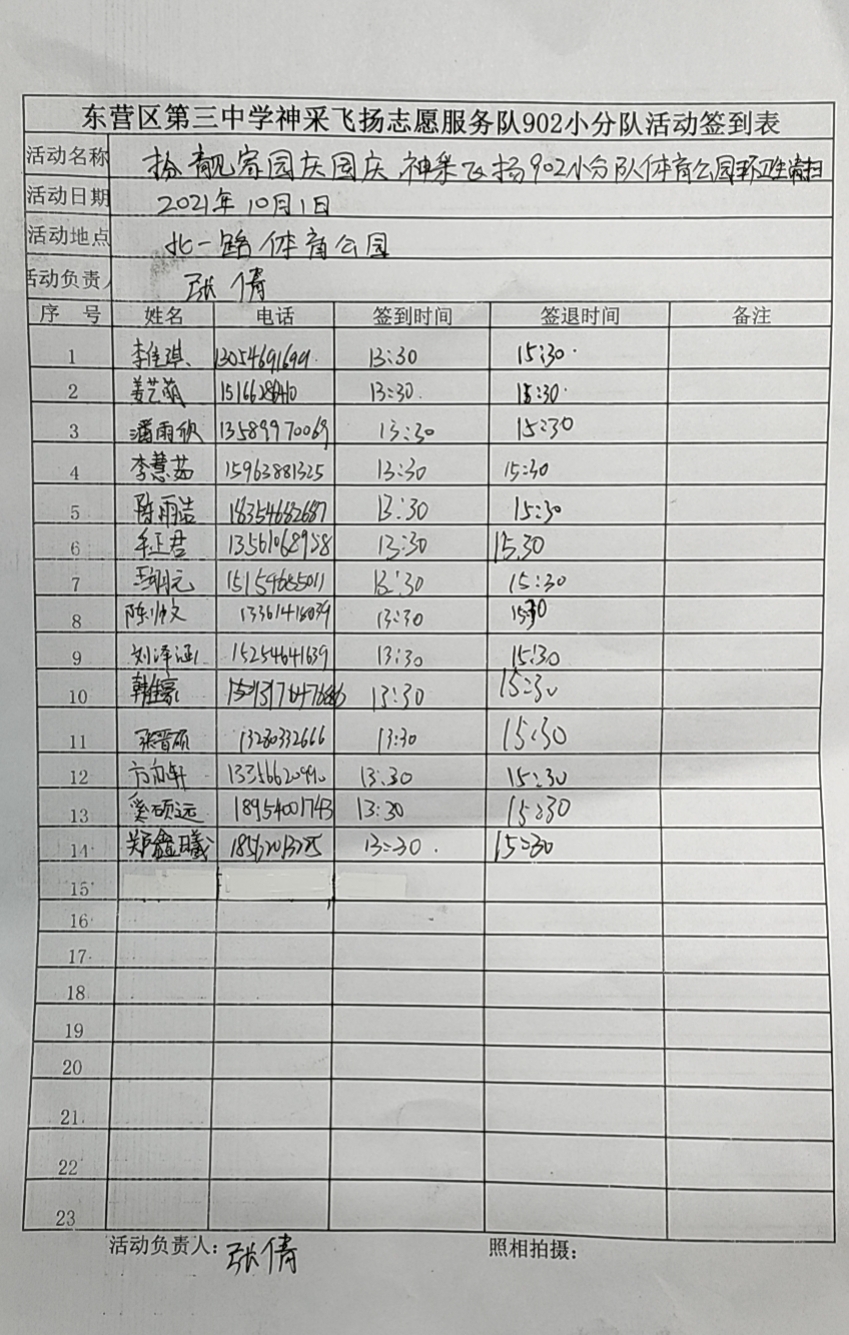 东营区第三中学神采飞扬志愿服务队902小分队活动签到表
活动名称 扮靓家园庆国庆 神采飞扬902小分队体育公园环卫生清扫
活动日期 2021年10月1日
活动地点 北一路体育公园
活动负责人 张倩
序号 姓名 电话 签到时间 签退时间 备注
1 李佳琪 13054691699 13:30 15:30
2 姜艺萌 13:30 15:30
3 潘雨欣 13589970069 13:30 15:30
4 李慧茹 15963881325 13:30 15:30
5 陈雨洁 18354682687 13:30 15:30
6 13561068928 13:30 15:30
7 15154685011 13:30 15:30
8 陈帅文 13:30 15:30
9 刘泽涵 15254641639 13:30 15:30
10 13:30 15:30
11 张晋硕 13280332666 13:30 15:30
12 方向轩 13:30 15:30
13 奚硕远 18954001743 13:30 15:30
14 郑鑫曦 13:30 15:30
15
16
17
18
19
20
21
22
23
活动负责人：张倩 照相拍摄：